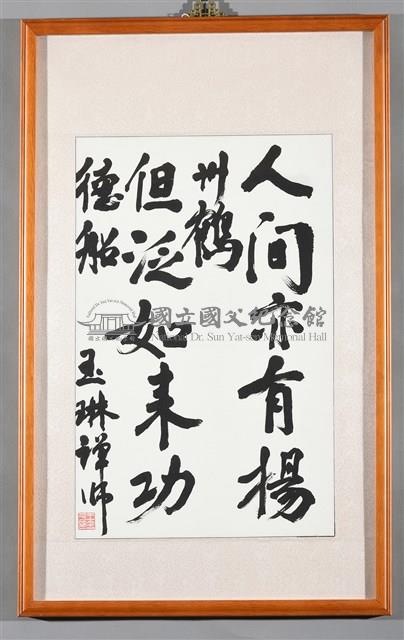 人间亦有揚
州鶴
但泛如来功
德船
玉琳禅师
國立國父紀念館
National Dr. Sun Yat-sen Memorial Hall